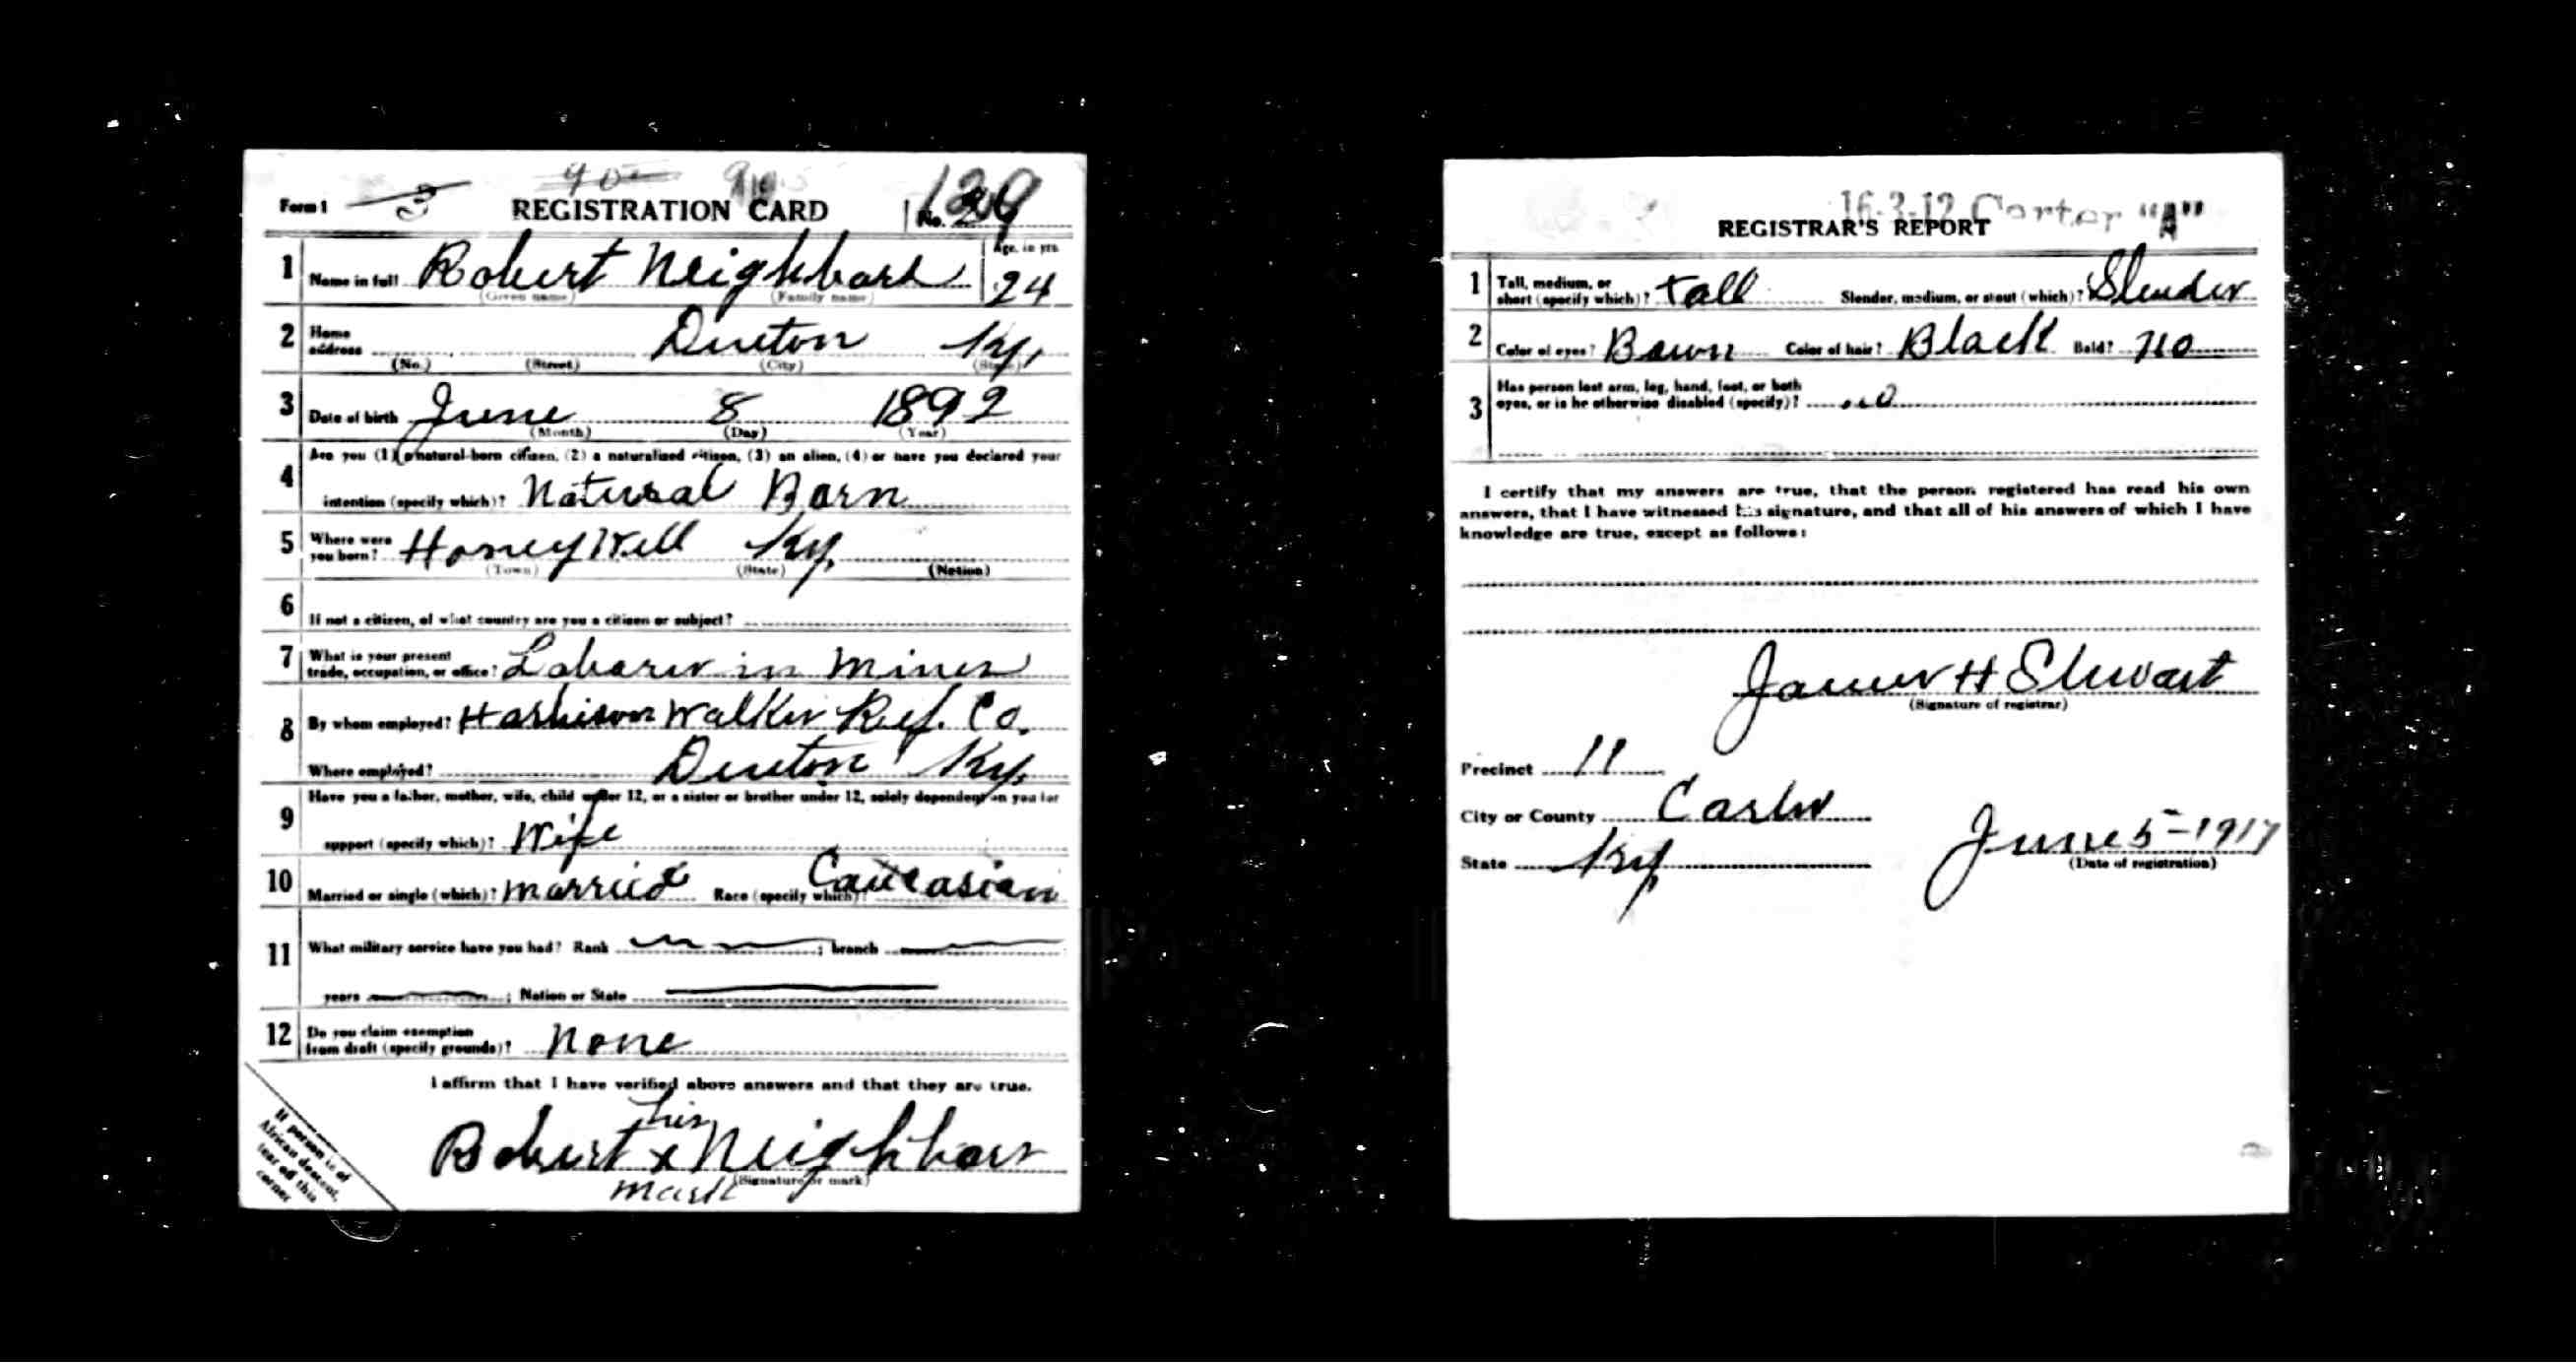 Form 1 3 90 REGISTRATION CARD No. 129
1 Name in full Robert Neighbors Age, in yrs. 24
(Given name) (Family name)
2 Home address Denton Ky,
(No.) (Street) (City) (State)
3 Date of birth June 8 1892
(Month) (Day) (Year)
4 Are you (1) a natural-born citizen, (2) a naturalized citizen, (3) an alien, (4) or have you declared your
intention (specify which)? Natural Born
5 Where were you born? HoneyWell Ky,
(Town) (State) (Nation)
6 If not a citizen, of what country are you a citizen or subject?
7 What is your present trade, occupation, or office? Laborer in Mines
8 By whom employed? Harbison Walker Ref. Co.
Where employed? Denton Ky,
9 Have you a father, mother, wife, child under 12, or a sister or brother under 12, solely dependent on you for
support (specify which)? Wife
10 Married or single (which)? married Race (specify which)? Caucasian
11 What military service have you had? Rank ; branch
years ; Nation or State
12 Do you claim exemption from draft (specify grounds)? None
I affirm that I have verified above answers and that they are true.
his
Robert x Neighbors
mark (Signature or mark)
If person is of
African descent,
tear off this
corner
16-3-12 Carter "A"
REGISTRAR'S REPORT
1 Tall, medium, or short (specify which)? tall Slender, medium, or stout (which)? Slender
2 Color of eyes? Bown Color of hair? Black Bald? no
3 Has person lost arm, leg, hand, foot, or both
eyes, or is he otherwise disabled (specify)? no
I certify that my answers are true, that the person registered has read his own
answers, that I have witnessed his signature, and that all of his answers of which I have
knowledge are true, except as follows:
James H Stewart
(Signature of registrar)
Precinct 11
City or County Carter
State Ky June 5-1917
(Date of registration)